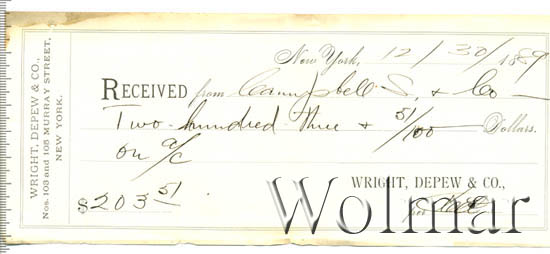 WRIGHT, DEPEW & CO.,
Nos. 103 and 105 MURRAY STREET,
NEW YORK.
New York, 12/30/1889
RECEIVED from Campbell S, & Co
Two hundred three & 51/100 Dollars.
on a/c
$203 51
WRIGHT, DEPEW & CO.,
per
Wolmar